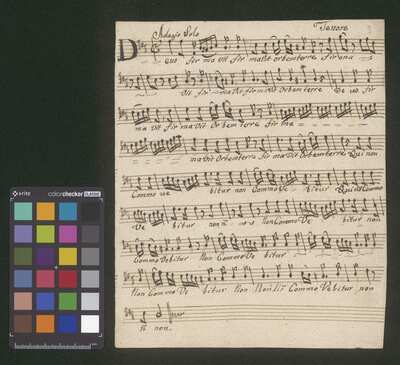 Adagio Solo Tenore
Deus fir ma vit fir mavit orbem terre firma
vit fir ma vit fir mavit Orbem terre De us fir
ma vit fir mavit Or bem terre fir ma
mavit orbem terre fir ma vit orbem terre. Qui non
Commo ve bitur non Commo Ve bitur Qui non Commo
Ve bitur non non Commo Ve bitur non
Commo Vebitur Non Commo Ve bitur
Non Commo Ve bitur Non Non Commo Vebitur non
non
x-rite colorchecker CLASSIC